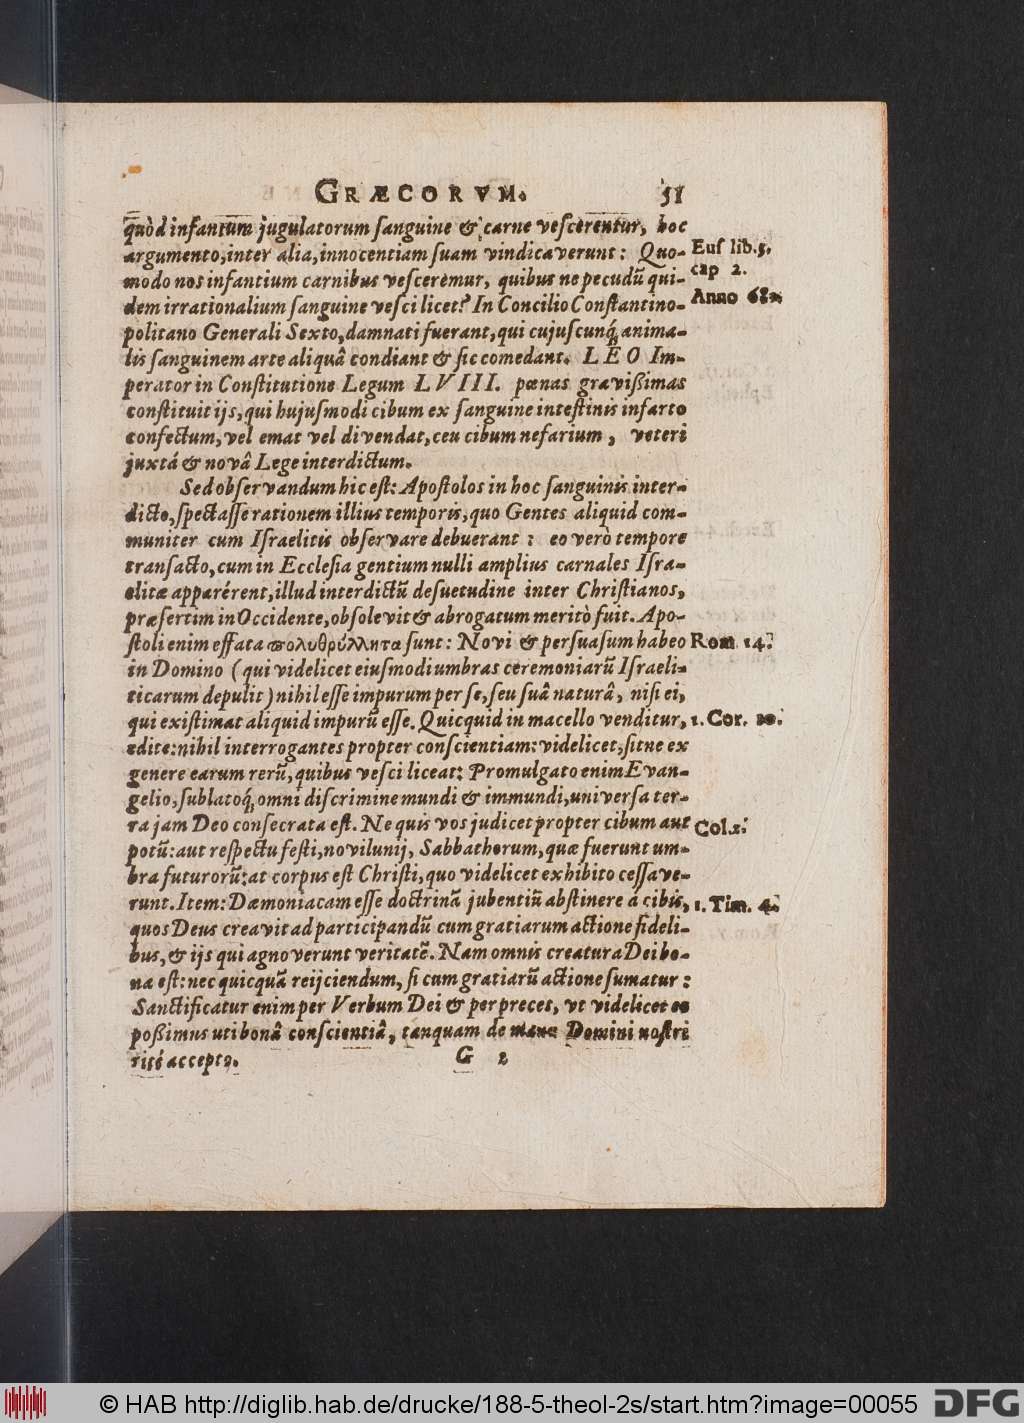 GRÆCORVM. 51
quòd infantum jugulatorum sanguine & carne vescerentur, hoc
argumento, inter alia, innocentiam suam vindicaverunt: Quo-
modo nos infantium carnibus vesceremur, quibus ne pecudũ qui-
dem irrationalium sanguine vesci licet? In Concilio Constantino-
politano Generali Sexto, damnati fuerant, qui cujuscunq́; anima-
lis sanguinem arte aliquâ condiant & sic comedant. LEO Im-
perator in Constitutione Legum LVIII. pœnas gravißimas
constituit ijs, qui hujusmodi cibum ex sanguine intestinis infarto
confectum, vel emat vel divendat, ceu cibum nefarium, veteri
juxtá & novâ Lege interdictum.
Sed observandum hic est: Apostolos in hoc sanguinis inter-
dicto, spectasse rationem illius temporis, quo Gentes aliquid com-
muniter cum Israelitis observare debuerant: eo verò tempore
transacto, cum in Ecclesia gentium nulli amplius carnales Isra-
elitæ apparérent, illud interdictũ desuetudine inter Christianos,
præsertim in Occidente, obsolevit & abrogatum meritò fuit. Apo-
stoli enim effata πολυθρύλλητα sunt: Novi & persuasum habeo
in Domino (qui videlicet eiusmodi umbras ceremoniarũ Israeli-
ticarum depulit) nihil esse impurum per se, seu suâ naturâ, nisi ei,
qui existimat aliquid impurũ esse. Quicquid in macello venditur,
edite: nihil interrogantes propter conscientiam: videlicet, sitne ex
genere earum rerũ, quibus vesci liceat: Promulgato enim Evan-
gelio, sublatoq́; omni discrimine mundi & immundi, universa ter-
ra jam Deo consecrata est. Ne quis vos judicet propter cibum aut
potũ: aut respectu festi, novilunij, Sabbathorum, quæ fuerunt um-
bra futurorũ: at corpus est Christi, quo videlicet exhibito cessave-
runt. Item: Dæmoniacam esse doctrinã jubentiũ abstinere á cibis,
quos Deus creavit ad participandũ cum gratiarum actione fideli-
bus, & ijs qui agnoverunt veritatẽ. Nam omnis creatura Dei bo-
na est: nec quicquã reijciendum, si cum gratiarũ actione sumatur:
Sanctificatur enim per Verbum Dei & per preces, vt videlicet eo
poßimus uti bonâ conscientiâ, tanquam de manu Domini nostri
rité accepto.
G 2
Eus lib. 5.
cap 2.
Anno
Rom 14.
1. Cor. 10.
Col. 2.
1. Tim. 4.
© HAB http://diglib.hab.de/drucke/188-5-theol-2s/start.htm?image=00055
DFG